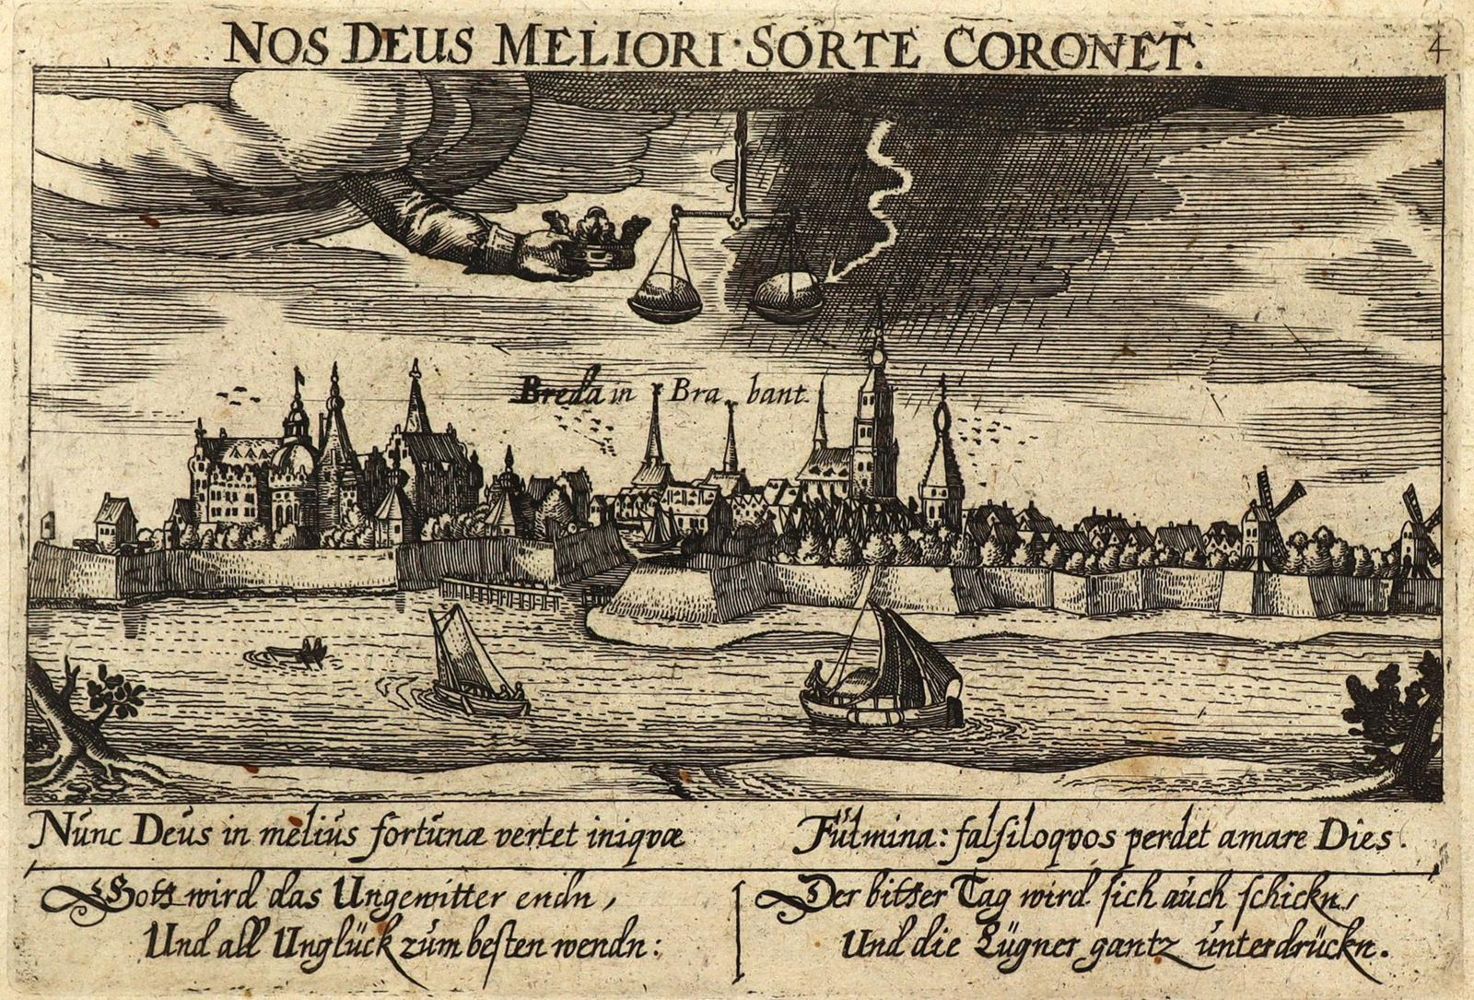 NOS DEUS MELIORI SORTE CORONET.
4
Breda in Brabant.
Nunc Deus in melius fortunæ vertet iniqvæ
Fulmina: falsiloqvos perdet amare Dies.
Gott wird das Ungewitter endn,
Und all Unglück zum besten wendn:
Der bitter Tag wird sich auch schickn,
Und die Lügner gantz unterdrückn.